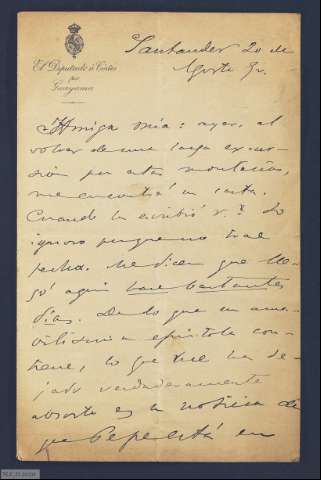 El Diputado á Cortes
por
Guayama
Santander 20 de
Agosto 90.
Amiga mía: ayer, al
volver de una larga excur-
sion por estas montañas,
me encontré su carta.
Cuando la escribió v.ª lo
ignoro porque no trae
fecha. Me dicen que lle-
gó aquí hace bastantes
días. De lo que su ama-
bilísima epístola con-
tiene, lo que me ha de-
jado verdaderamente
absorto es la noticia de
que Pepe está en